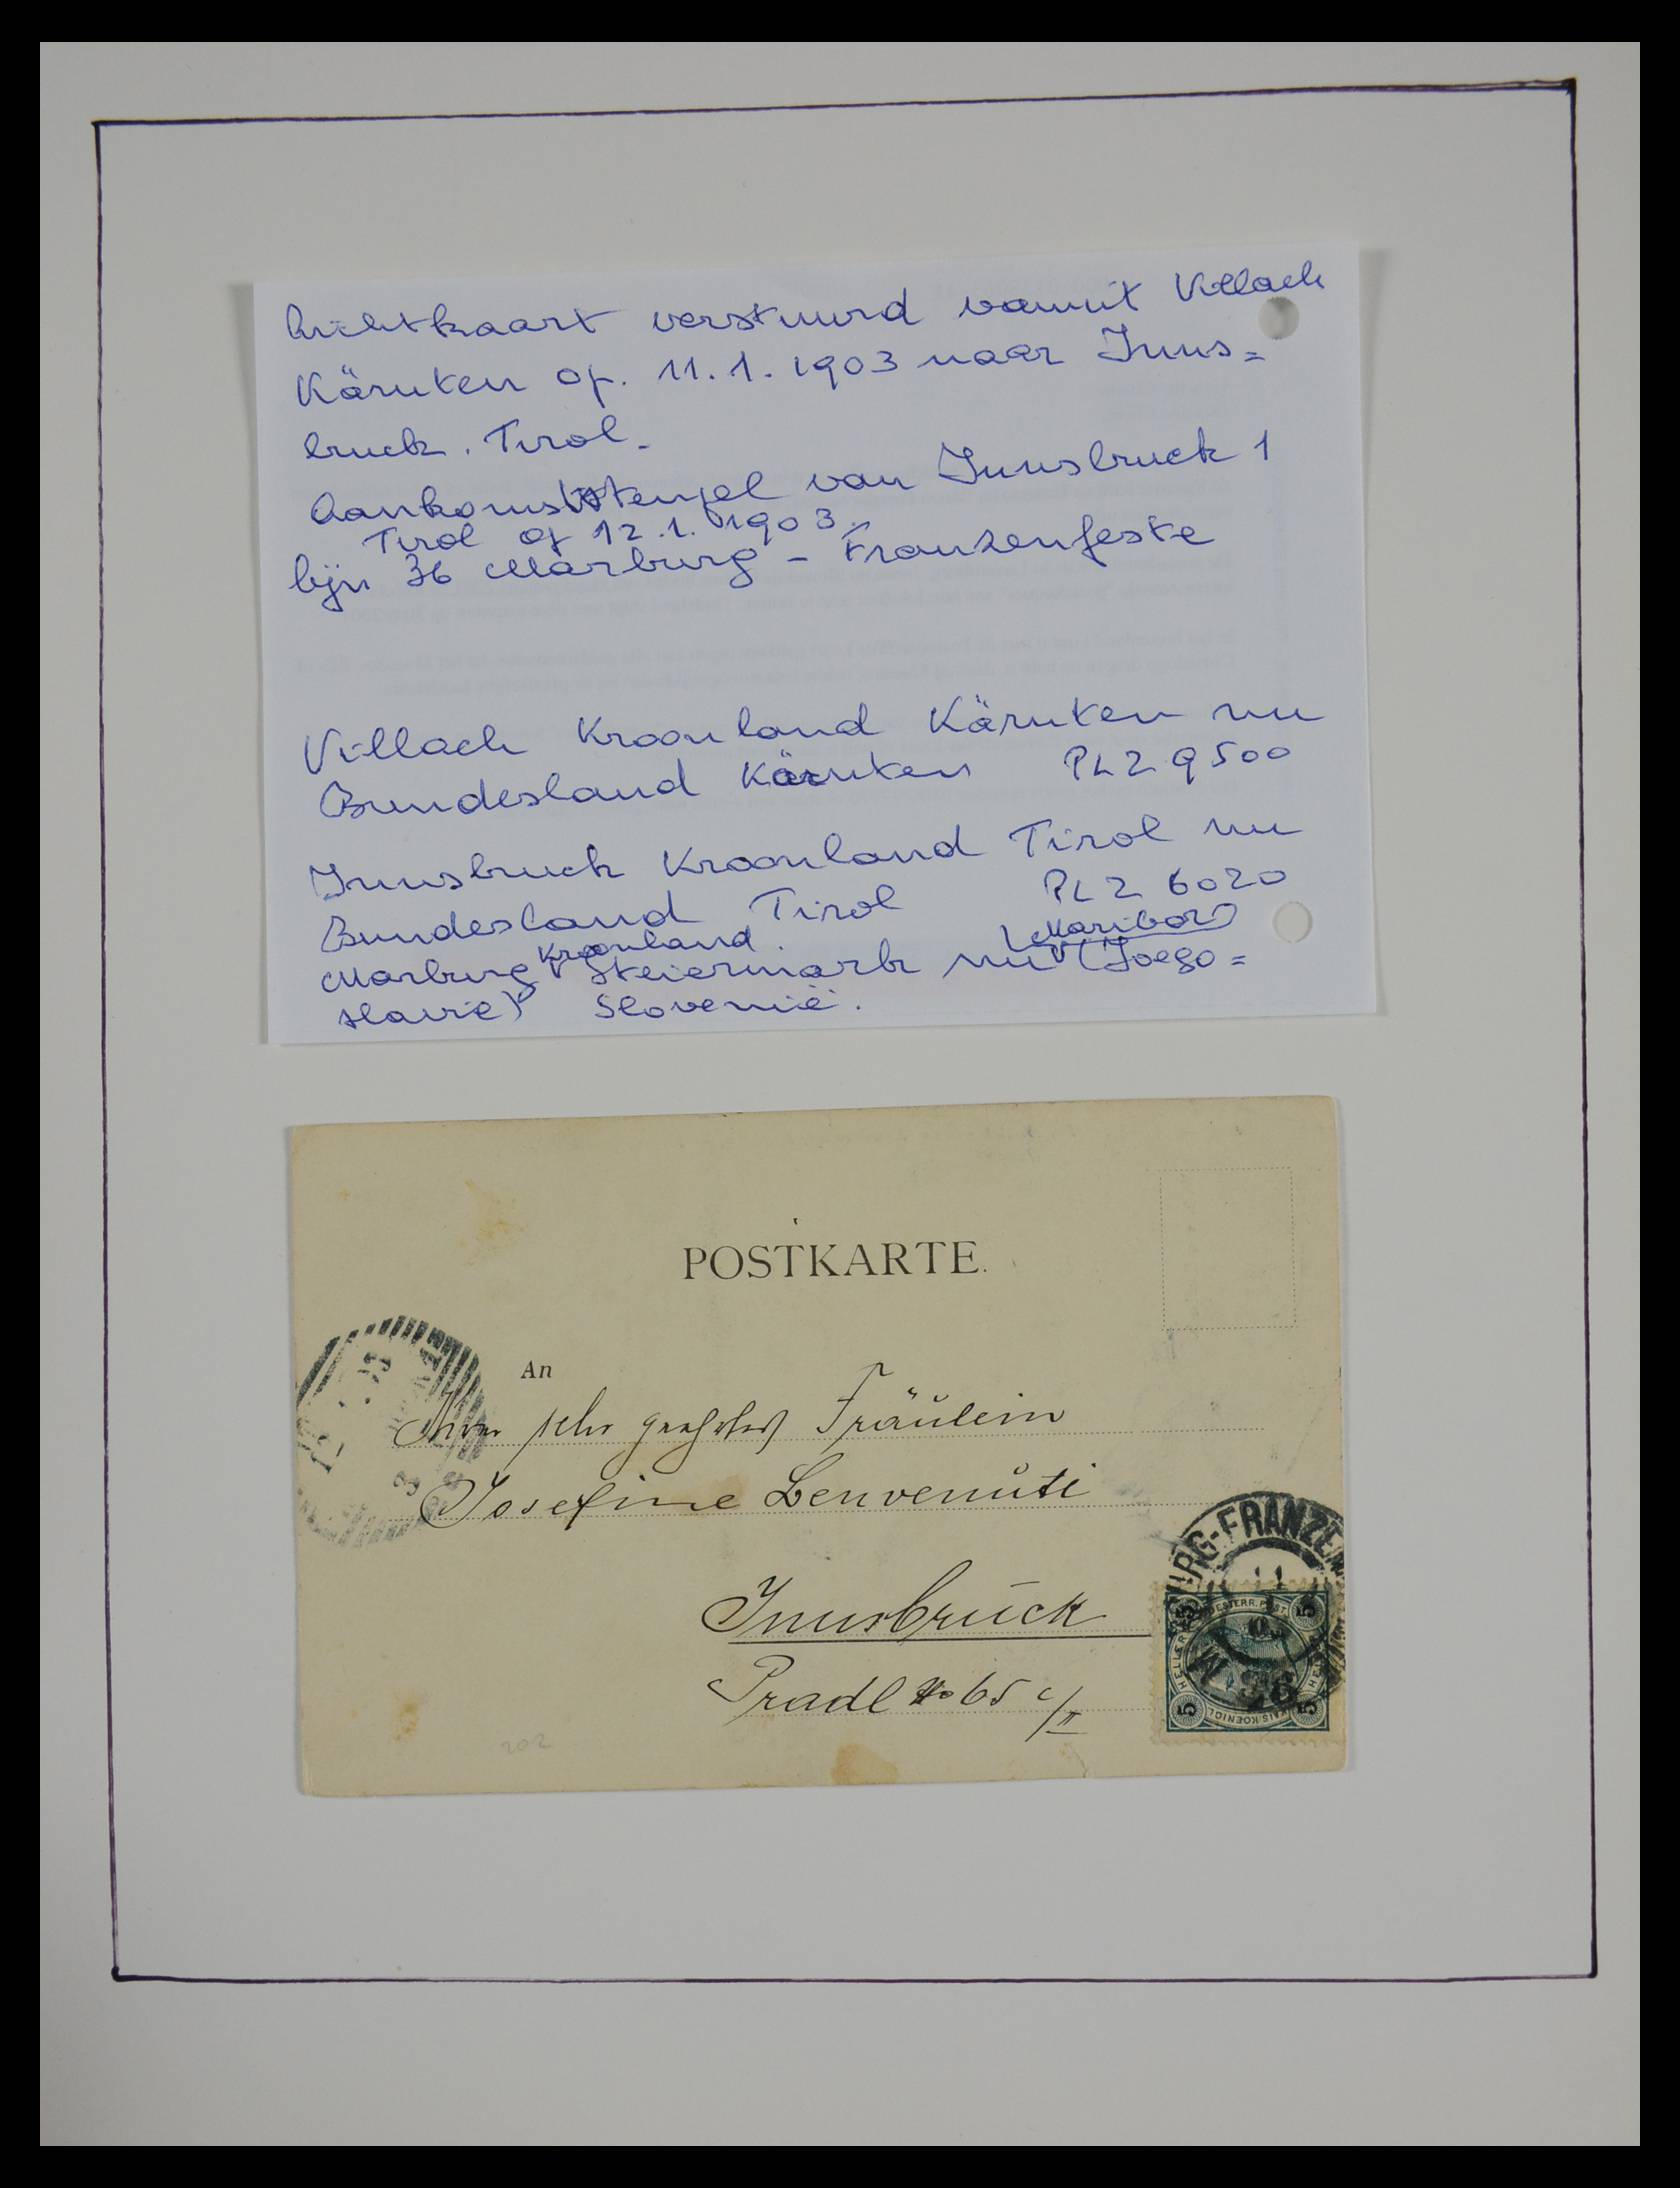 Aichtkaart verstuurd vanuit Villach
Kärnten op. 11.1.1903 naar Inns=
bruck. Tirol.
Aankomststempel van Innsbruck 1
Tirol op 12.1.1903.
lijn 36 Marburg - Franzenfeste
Villach Kroonland Kärnten nu
Bundesland Kärnten PLZ 9500
Innsbruck Kroonland Tirol nu
Bundesland Tirol PLZ 6020
Kroonland. Maribor
Marburg Steiermark nu (Joego=
slavië) Slovenië.
POSTKARTE.
An
sehr geehrtes Fräulein
Josefine Benvenuti
Innsbruck
Pradl No 65 c/II
202
URG-FRANZEN
11
36
5 OESTERR. POST 5
HELLER HELLER
5 KAIS KOENIGL 5
12